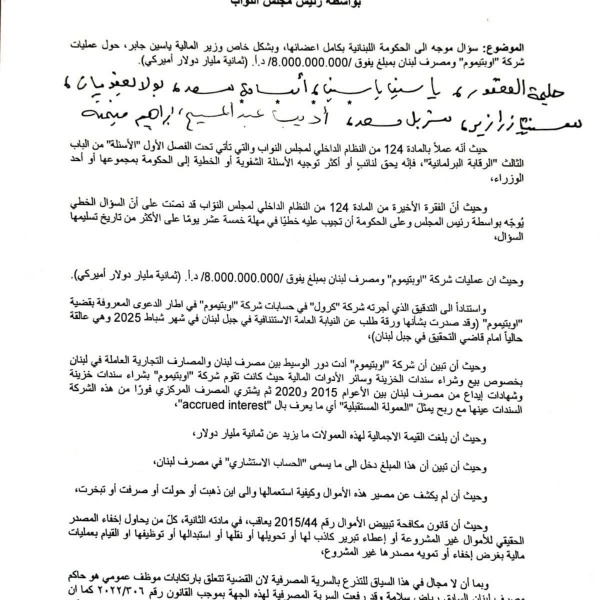 بواسطة رئيس مجلس النواب
الموضوع: سؤال موجه الى الحكومة اللبنانية بكامل اعضائها، وبشكل خاص وزير المالية ياسين جابر، حول عمليات
شركة "اوبتيموم" ومصرف لبنان بمبلغ يفوق /8.000.000.000/ د.أ. (ثمانية مليار دولار أميركي).
حليمة القعقور، ياسين ياسين، أسامة سعد، بولا يعقوبيان،
سينتيا زرازير، شربل مسعد، أديب عبد المسيح، ابراهيم منيمنة
حيث أنّه عملاً بالمادة 124 من النظام الداخلي لمجلس النواب والتي تأتي تحت الفصل الأول "الأسئلة" من الباب
الثالث "الرقابة البرلمانية"، فإنّه يحق لنائبٍ أو أكثر توجيه الأسئلة الشفوية أو الخطية إلى الحكومة بمجموعها أو أحد
الوزراء،
وحيث أنّ الفقرة الأخيرة من المادة 124 من النظام الداخلي لمجلس النوّاب قد نصّت على أنّ السؤال الخطي
يُوجّه بواسطة رئيس المجلس وعلى الحكومة أن تجيب عليه خطيًا في مهلة خمسة عشر يومًا على الأكثر من تاريخ تسليمها
السؤال،
وحيث ان عمليات شركة "اوبتيموم" ومصرف لبنان بمبلغ يفوق /8.000.000.000/ د.أ. (ثمانية مليار دولار أميركي).
واستناداً الى التدقيق الذي أجرته شركة "كرول" في حسابات شركة "اوبتيموم" في اطار الدعوى المعروفة بقضية
"اوبتيموم" (وقد صدرت بشأنها ورقة طلب عن النيابة العامة الاستئنافية في جبل لبنان في شهر شباط 2025 وهي عالقة
حالياً امام قاضي التحقيق في جبل لبنان)،
وحيث أن تبين أن شركة "اوبتيموم" أدت دور الوسيط بين مصرف لبنان والمصارف التجارية العاملة في لبنان
بخصوص بيع وشراء سندات الخزينة وسائر الأدوات المالية حيث كانت تقوم شركة "اوبتيموم" بشراء سندات خزينة
وشهادات إيداع من مصرف لبنان بين الأعوام 2015 و2020 ثم يشتري المصرف المركزي فورًا من هذه الشركة
السندات عينها مع ربح يمثل "العمولة المستقبلية" أي ما يعرف بال "accrued interest"،
وحيث أن بلغت القيمة الاجمالية لهذه العمولات ما يزيد عن ثمانية مليار دولار،
وحيث أن تبين أن هذا المبلغ دخل الى ما يسمى "الحساب الاستشاري" في مصرف لبنان،
وحيث أن لم يكشف عن مصير هذه الأموال وكيفية استعمالها والى اين ذهبت أو حولت أو صرفت أو تبخرت،
وحيث أن قانون مكافحة تبييض الأموال رقم 2015/44 يعاقب، في مادته الثانية، كلّ من يحاول إخفاء المصدر
الحقيقي للأموال غير المشروعة أو إعطاء تبرير كاذب لها أو تحويلها أو نقلها أو استبدالها أو توظيفها او القيام بعمليات
مالية بغرض إخفاء أو تمويه مصدرها غير المشروع،
وبما أن لا مجال في هذا السياق للتذرع بالسرية المصرفية لان القضية تتعلق بارتكابات موظف عمومي هو حاكم
مصرف لبنان السابق رياض سلامة وقد رفعت السرية المصرفية لهذه الجهة بموجب القانون رقم ٢٠٢٢/٣٠٦ كما ان